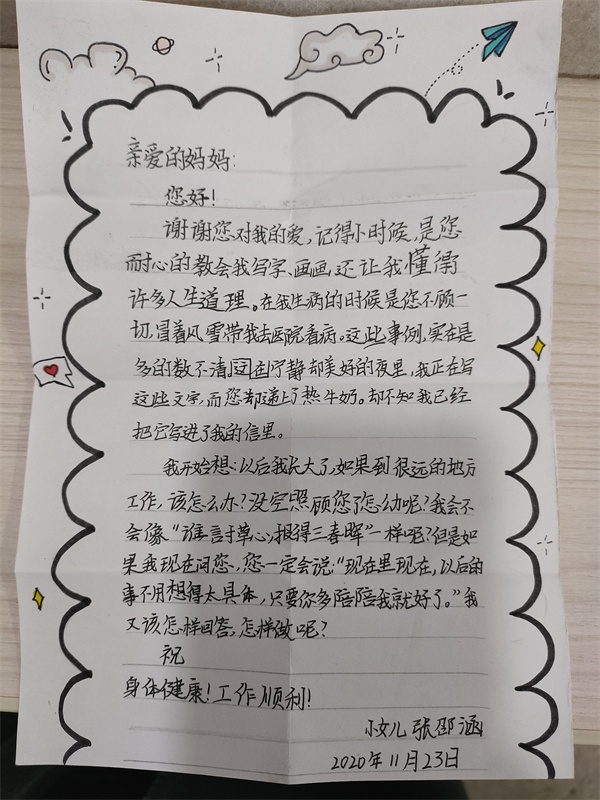 亲爱的妈妈:
您好!
谢谢您对我的爱,记得小时候,是您
耐心的教会我写字、画画,还让我懂得
许多人生道理。在我生病的时候是您不顾一
切,冒着风雪带我去医院看病。这些事例,实在是
多的数不清。在宁静却美好的夜里,我正在写
这些文字,而您却递上了热牛奶。却不知我已经
把它写进了我的信里。
我开始想:以后我长大了,如果到很远的地方
工作,该怎么办?没空照顾您了怎么办呢?我会不
会像“谁言寸草心,报得三春晖”一样呢?但是如
果我现在问您,您一定会说:“现在里现在,以后的
事不用想得太具体,只要你多陪陪我就好了。”我
又该怎样回答,怎样做呢?
祝
身体健康!工作顺利!
小女儿 张邵涵
2020年11月23日